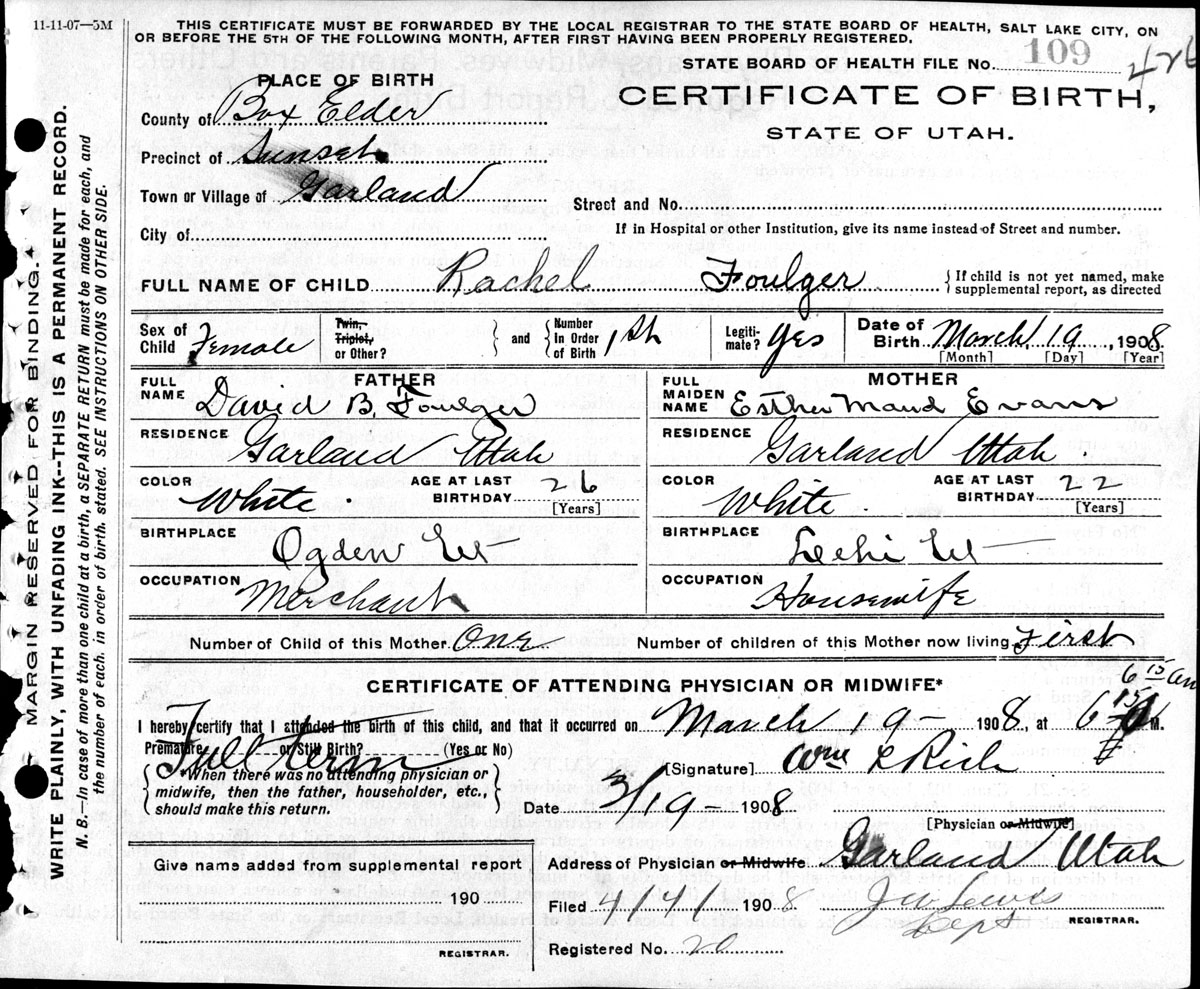 11-11-07—5M
THIS CERTIFICATE MUST BE FORWARDED BY THE LOCAL REGISTRAR TO THE STATE BOARD OF HEALTH, SALT LAKE CITY, ON
OR BEFORE THE 5TH OF THE FOLLOWING MONTH, AFTER FIRST HAVING BEEN PROPERLY REGISTERED.
STATE BOARD OF HEALTH FILE No. 109 426
PLACE OF BIRTH
CERTIFICATE OF BIRTH,
STATE OF UTAH.
County of Box Elder
Precinct of Sunset
Town or Village of Garland
Street and No.
City of
If in Hospital or other Institution, give its name instead of Street and number.
FULL NAME OF CHILD Rachel Foulger { If child is not yet named, make
supplemental report, as directed
Sex of Child Female
Twin, Triplet, or Other? } and { Number In Order of Birth 1st
Legiti-mate? Yes
Date of Birth March 19, 1908
[Month] [Day] [Year]
FATHER
FULL NAME David B. Foulger
RESIDENCE Garland Utah
COLOR White.
AGE AT LAST BIRTHDAY 26
[Years]
BIRTHPLACE Ogden Ut
OCCUPATION Merchant
MOTHER
FULL MAIDEN NAME Esther Maud Evans
RESIDENCE Garland Utah.
COLOR White.
AGE AT LAST BIRTHDAY 22
[Years]
BIRTHPLACE Lehi Ut
OCCUPATION Housewife
Number of Child of this Mother One Number of children of this Mother now living First
CERTIFICATE OF ATTENDING PHYSICIAN OR MIDWIFE*
6 15 am
I hereby certify that I attended the birth of this child, and that it occurred on March 19 - 1908, at 6 15 M.
Premature or Still Birth? (Yes or No)
Full term
{ *When there was no attending physician or
midwife, then the father, householder, etc.,
should make this return. }
[Signature] Wm L Rich
Date 3/19 - 1908
[Physician or Midwife]
Give name added from supplemental report
190
REGISTRAR.
Address of Physician or Midwife Garland Utah
Filed 4/4/ 1908 J W Lewis
Dept REGISTRAR.
Registered No. 20
MARGIN RESERVED FOR BINDING.
WRITE PLAINLY, WITH UNFADING INK--THIS IS A PERMANENT RECORD.
N. B.—In case of more than one child at a birth, a SEPARATE RETURN must be made for each, and
the number of each, in order of birth, stated. SEE INSTRUCTIONS ON OTHER SIDE.